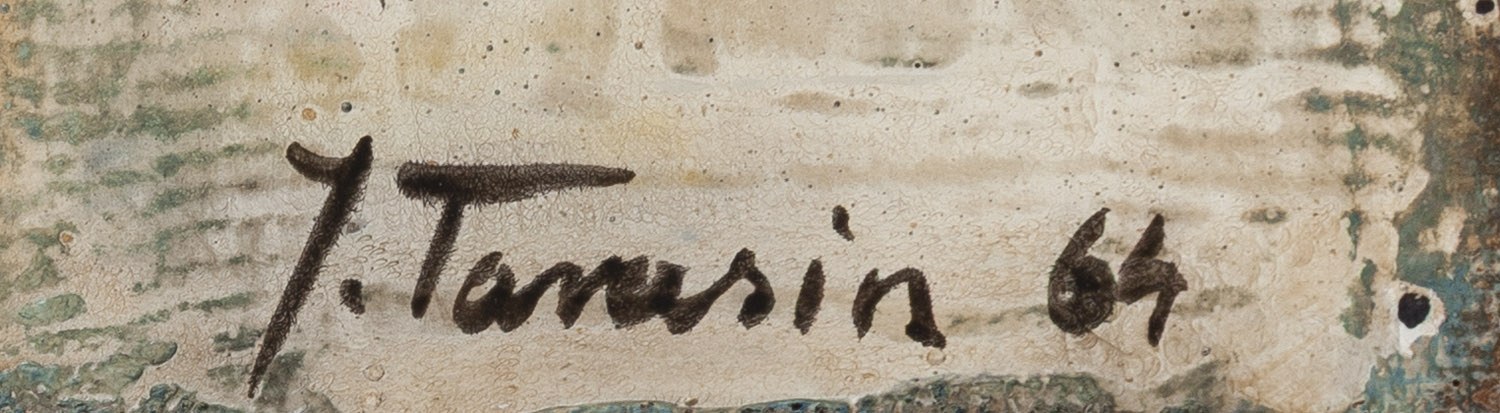 J. Tarasin 64